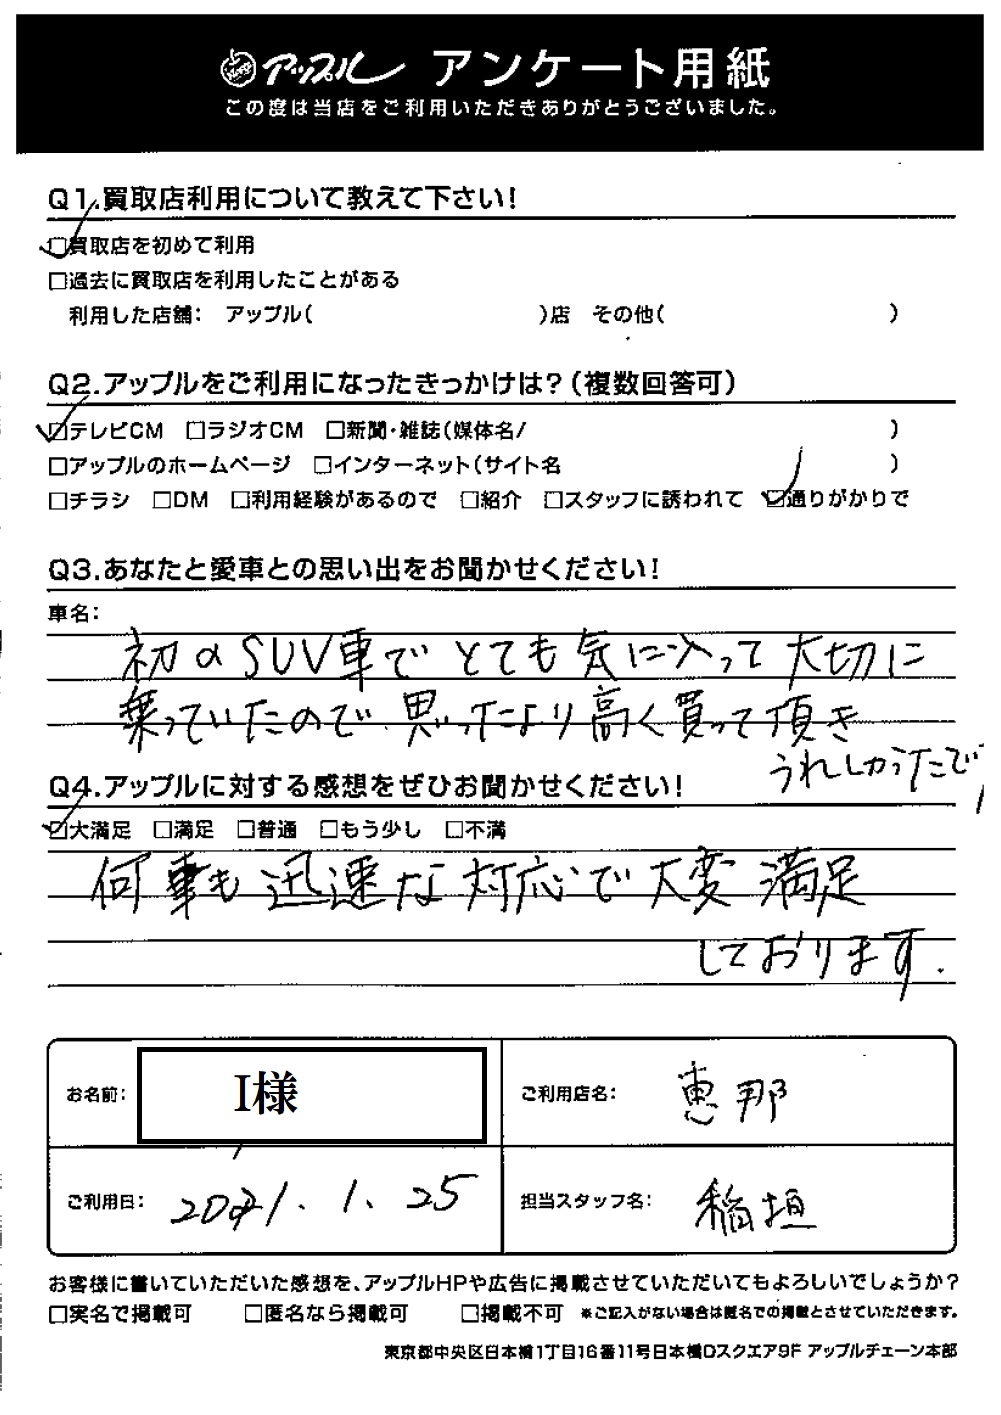 アップル アンケート用紙
この度は当店をご利用いただきありがとうございました。
Q1.買取店利用について教えて下さい!
☑買取店を初めて利用
□過去に買取店を利用したことがある
利用した店舗: アップル( )店 その他( )
Q2.アップルをご利用になったきっかけは?(複数回答可)
☑テレビCM □ラジオCM □新聞・雑誌(媒体名/ )
□アップルのホームページ □インターネット(サイト名 )
□チラシ □DM □利用経験があるので □紹介 □スタッフに誘われて ☑通りがかりで
Q3.あなたと愛車との思い出をお聞かせください!
車名:
初のSUV車でとても気に入って大切に
乗っていたので思ったより高く買って頂き
うれしかったです
Q4.アップルに対する感想をぜひお聞かせください!
☑大満足 □満足 □普通 □もう少し □不満
何事も迅速な対応で大変満足
しております.
お名前: I様 ご利用店名: 恵那
ご利用日: 2021.1.25 担当スタッフ名: 稲垣
お客様に書いていただいた感想を、アップルHPや広告に掲載させていただいてもよろしいでしょうか?
□実名で掲載可 □匿名なら掲載可 □掲載不可 ※ご記入がない場合は匿名での掲載とさせていただきます。
東京都中央区日本橋1丁目16番11号日本橋Dスクエア9F アップルチェーン本部